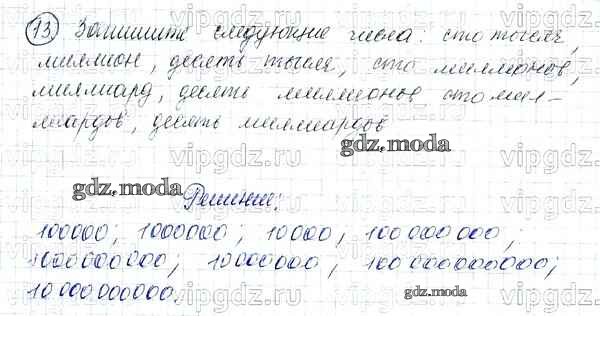 13 Запишите следующие числа: сто тысяч,
миллион, десять тысяч, сто миллионов,
миллиард, десять миллионов сто мил-
лиардов, десять миллиардов
gdz.moda
gdz.moda
Решение:
100000; 1000000; 10000, 100 000 000;
1000000000; 10000000; 100 000000000;
10 000 000000.
gdz.moda
vipgdz.ru